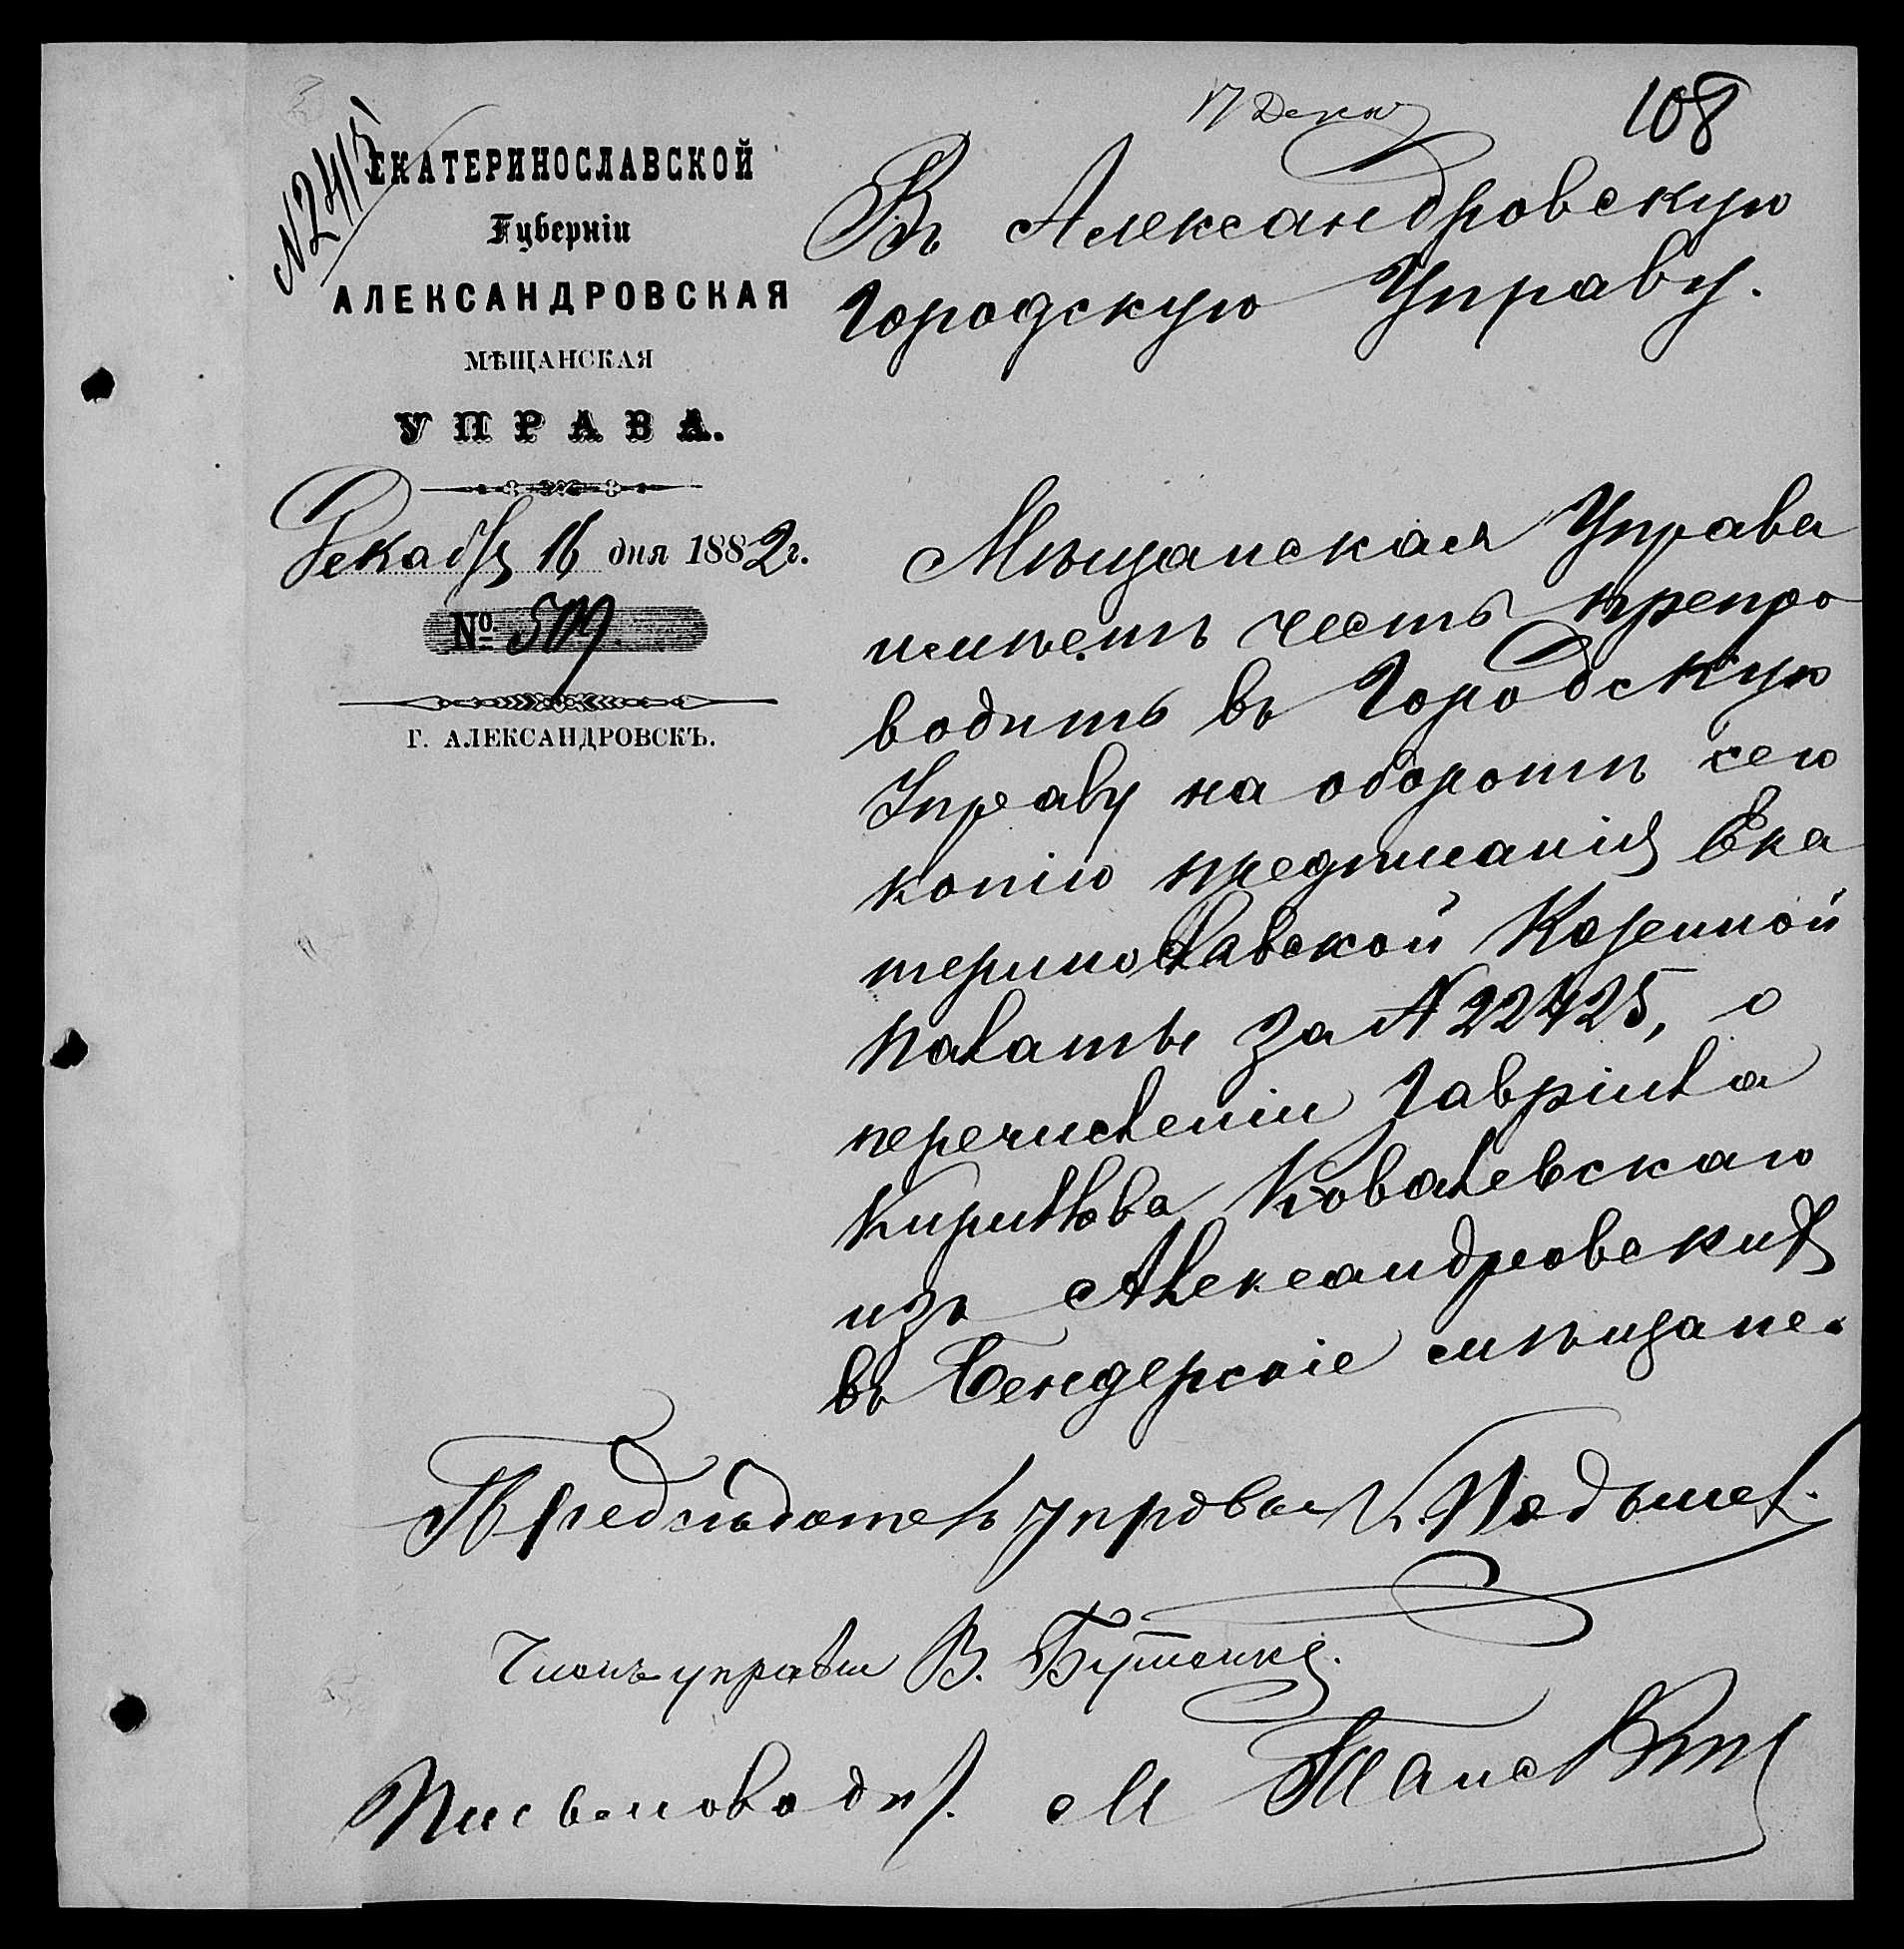 № 2415
17 Дек
108
ЕКАТЕРИНОСЛАВСКОЙ
Губерніи
АЛЕКСАНДРОВСКАЯ
МѢЩАНСКАЯ
УПРАВА.
Декабря 16 дня 1882 г.
№
Г. АЛЕКСАНДРОВСКЪ.
Въ Александровскую
Городскую Управу.
Мѣщанская Управа
имѣетъ честь препро
водить въ Городскую
Управу на оборотѣ сего
копію предписанія Ека
теринославской Казенной
палаты за № 22425, о
перечисленіи Гавріила
Кирилова Ковалевскаго
изъ Александровскихъ
въ Бендерскіе мѣщане.
Предсѣдатель управы
Членъ управы В. Бутенко.
Письмоводит. М